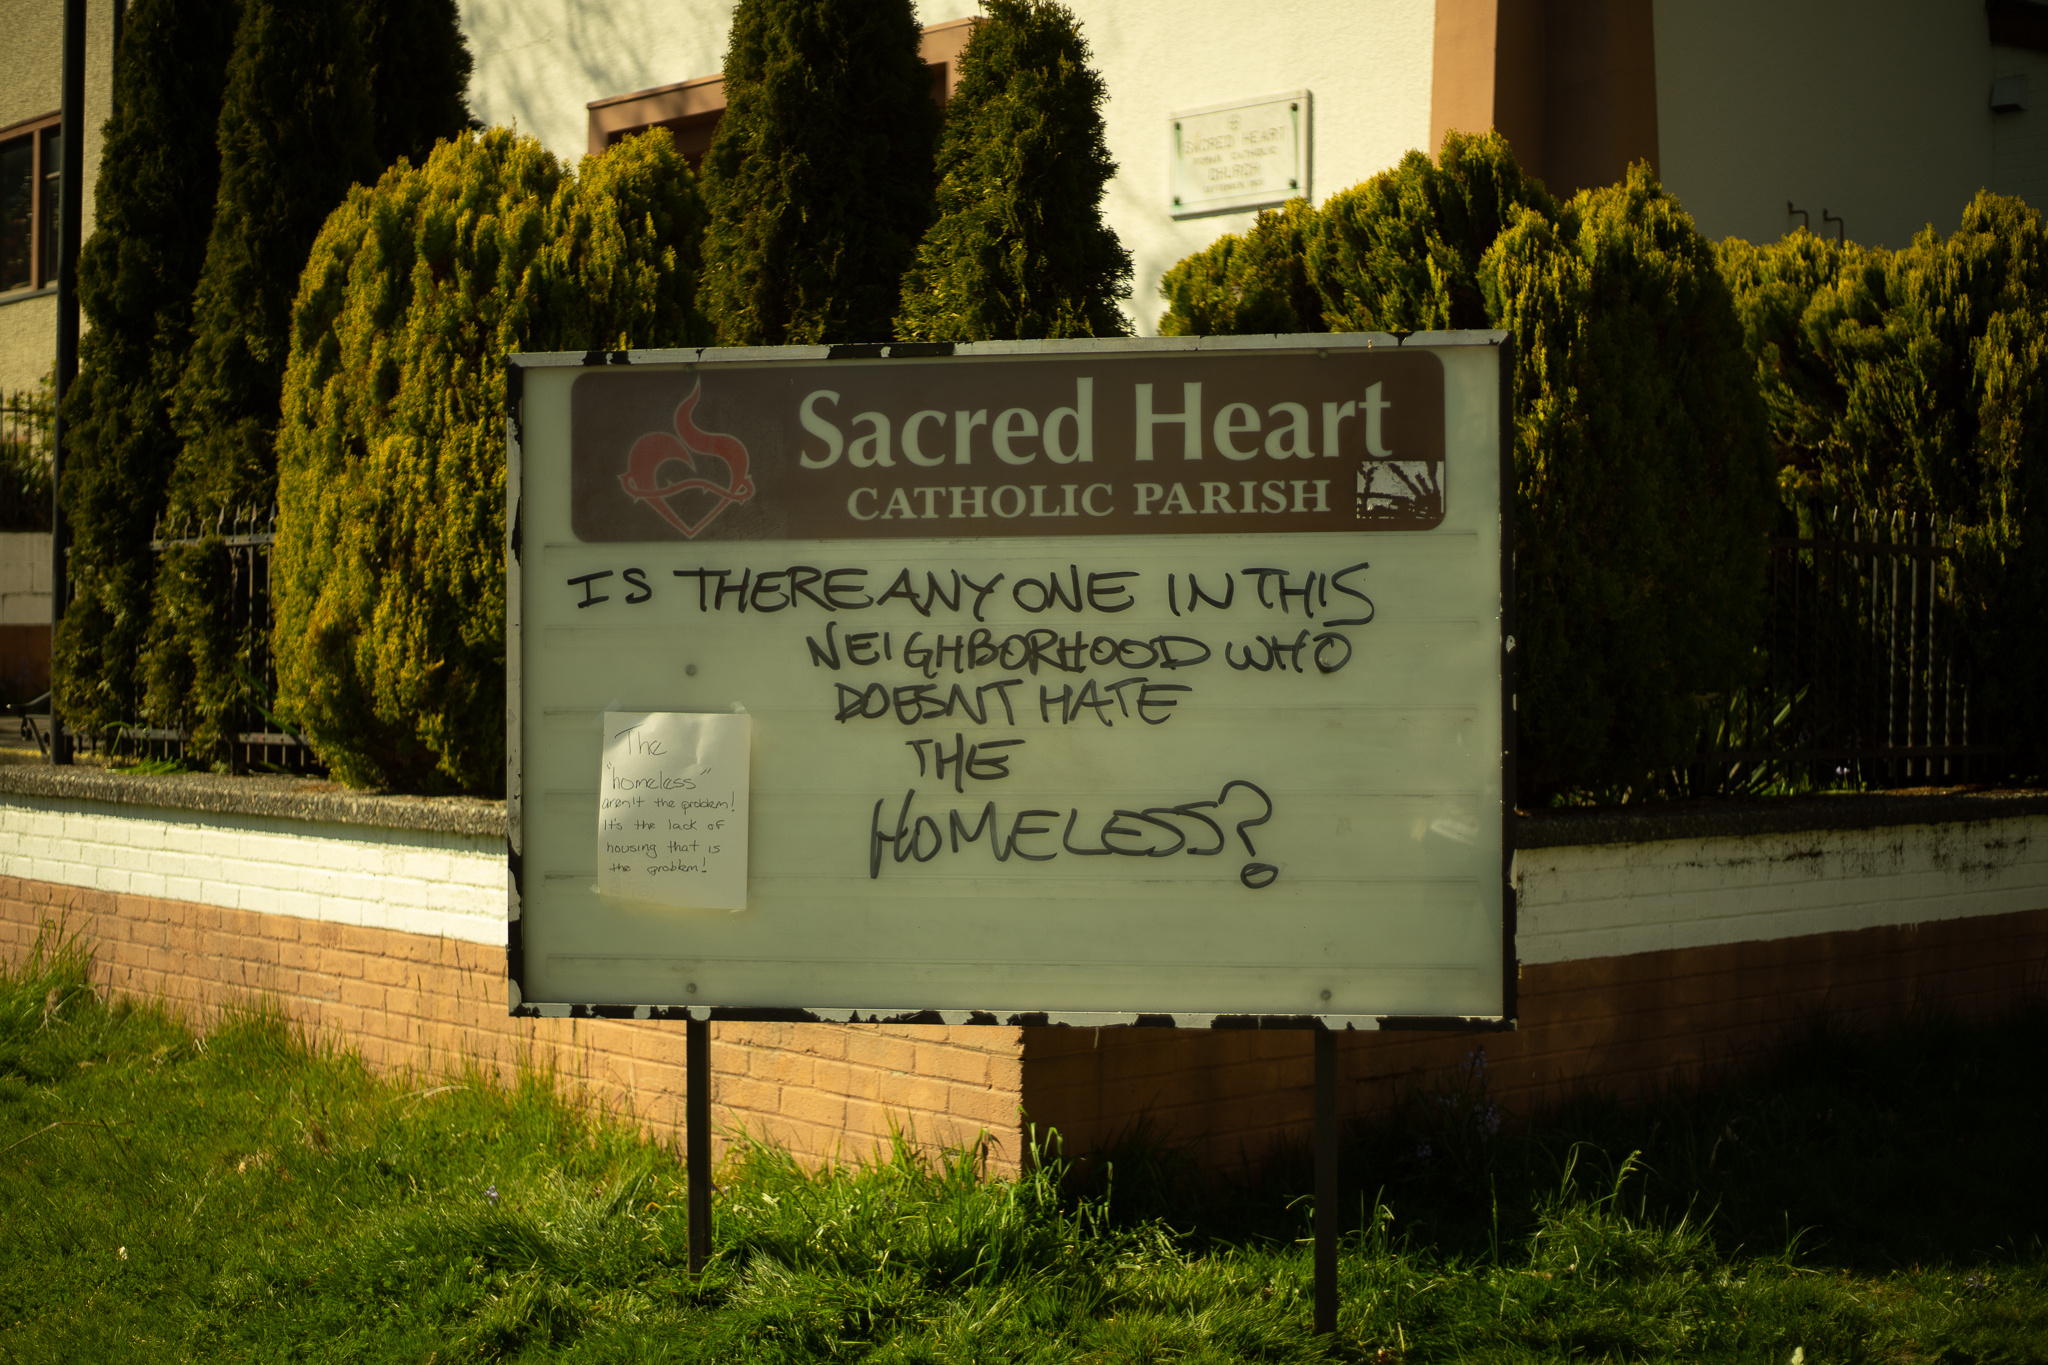 SACRED HEART
ROMAN CATHOLIC
CHURCH
Sacred Heart
CATHOLIC PARISH
IS THERE ANYONE IN THIS
NEIGHBORHOOD WHO
DOESNT HATE
THE
HOMELESS?
The
"homeless"
aren't the problem!
It's the lack of
housing that is
the problem!